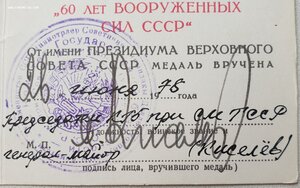 "60 ЛЕТ ВООРУЖЕННЫХ
СИЛ СССР"
От имени ПРЕЗИДИУМА ВЕРХОВНОГО
СОВЕТА СССР МЕДАЛЬ ВРУЧЕНА
26 июня 1978 года
Председатель КГБ при СМ ТССР
должность воинское звание
М. П. генерал-майор (Киселёв)
подпись лица, вручившего медаль)